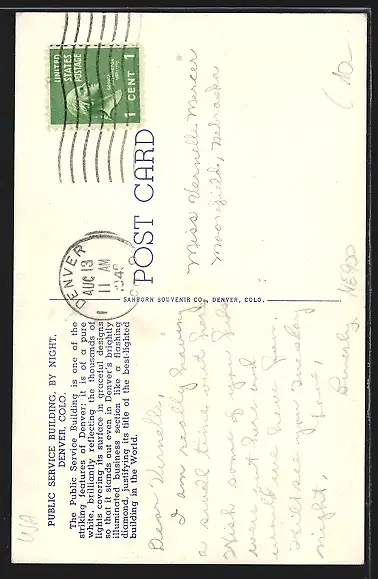 PUBLIC SERVICE BUILDING, BY NIGHT,
DENVER, COLO.
The Public Service Building is one of the
striking features of Denver; it is of a pure
white, brilliantly reflecting the thousands of
lights covering its surface in graceful designs
so that it stands out even in Denver's brightly
illuminated business section like a flashing
diamond, justifying its title of the best-lighted
building in the World.
Dear Vernelle,
I am really having
a swell time out here
Wish some of you kids
were out here and
night.
love,
Beverly
SANBORN SOUVENIR CO., DENVER, COLO.
POST CARD
DENVER
AUG 13
11 AM
UNITED
STATES
POSTAGE
1 CENT 1
Miss Vernelle Mercer
Moorefield, Nebraska
USA